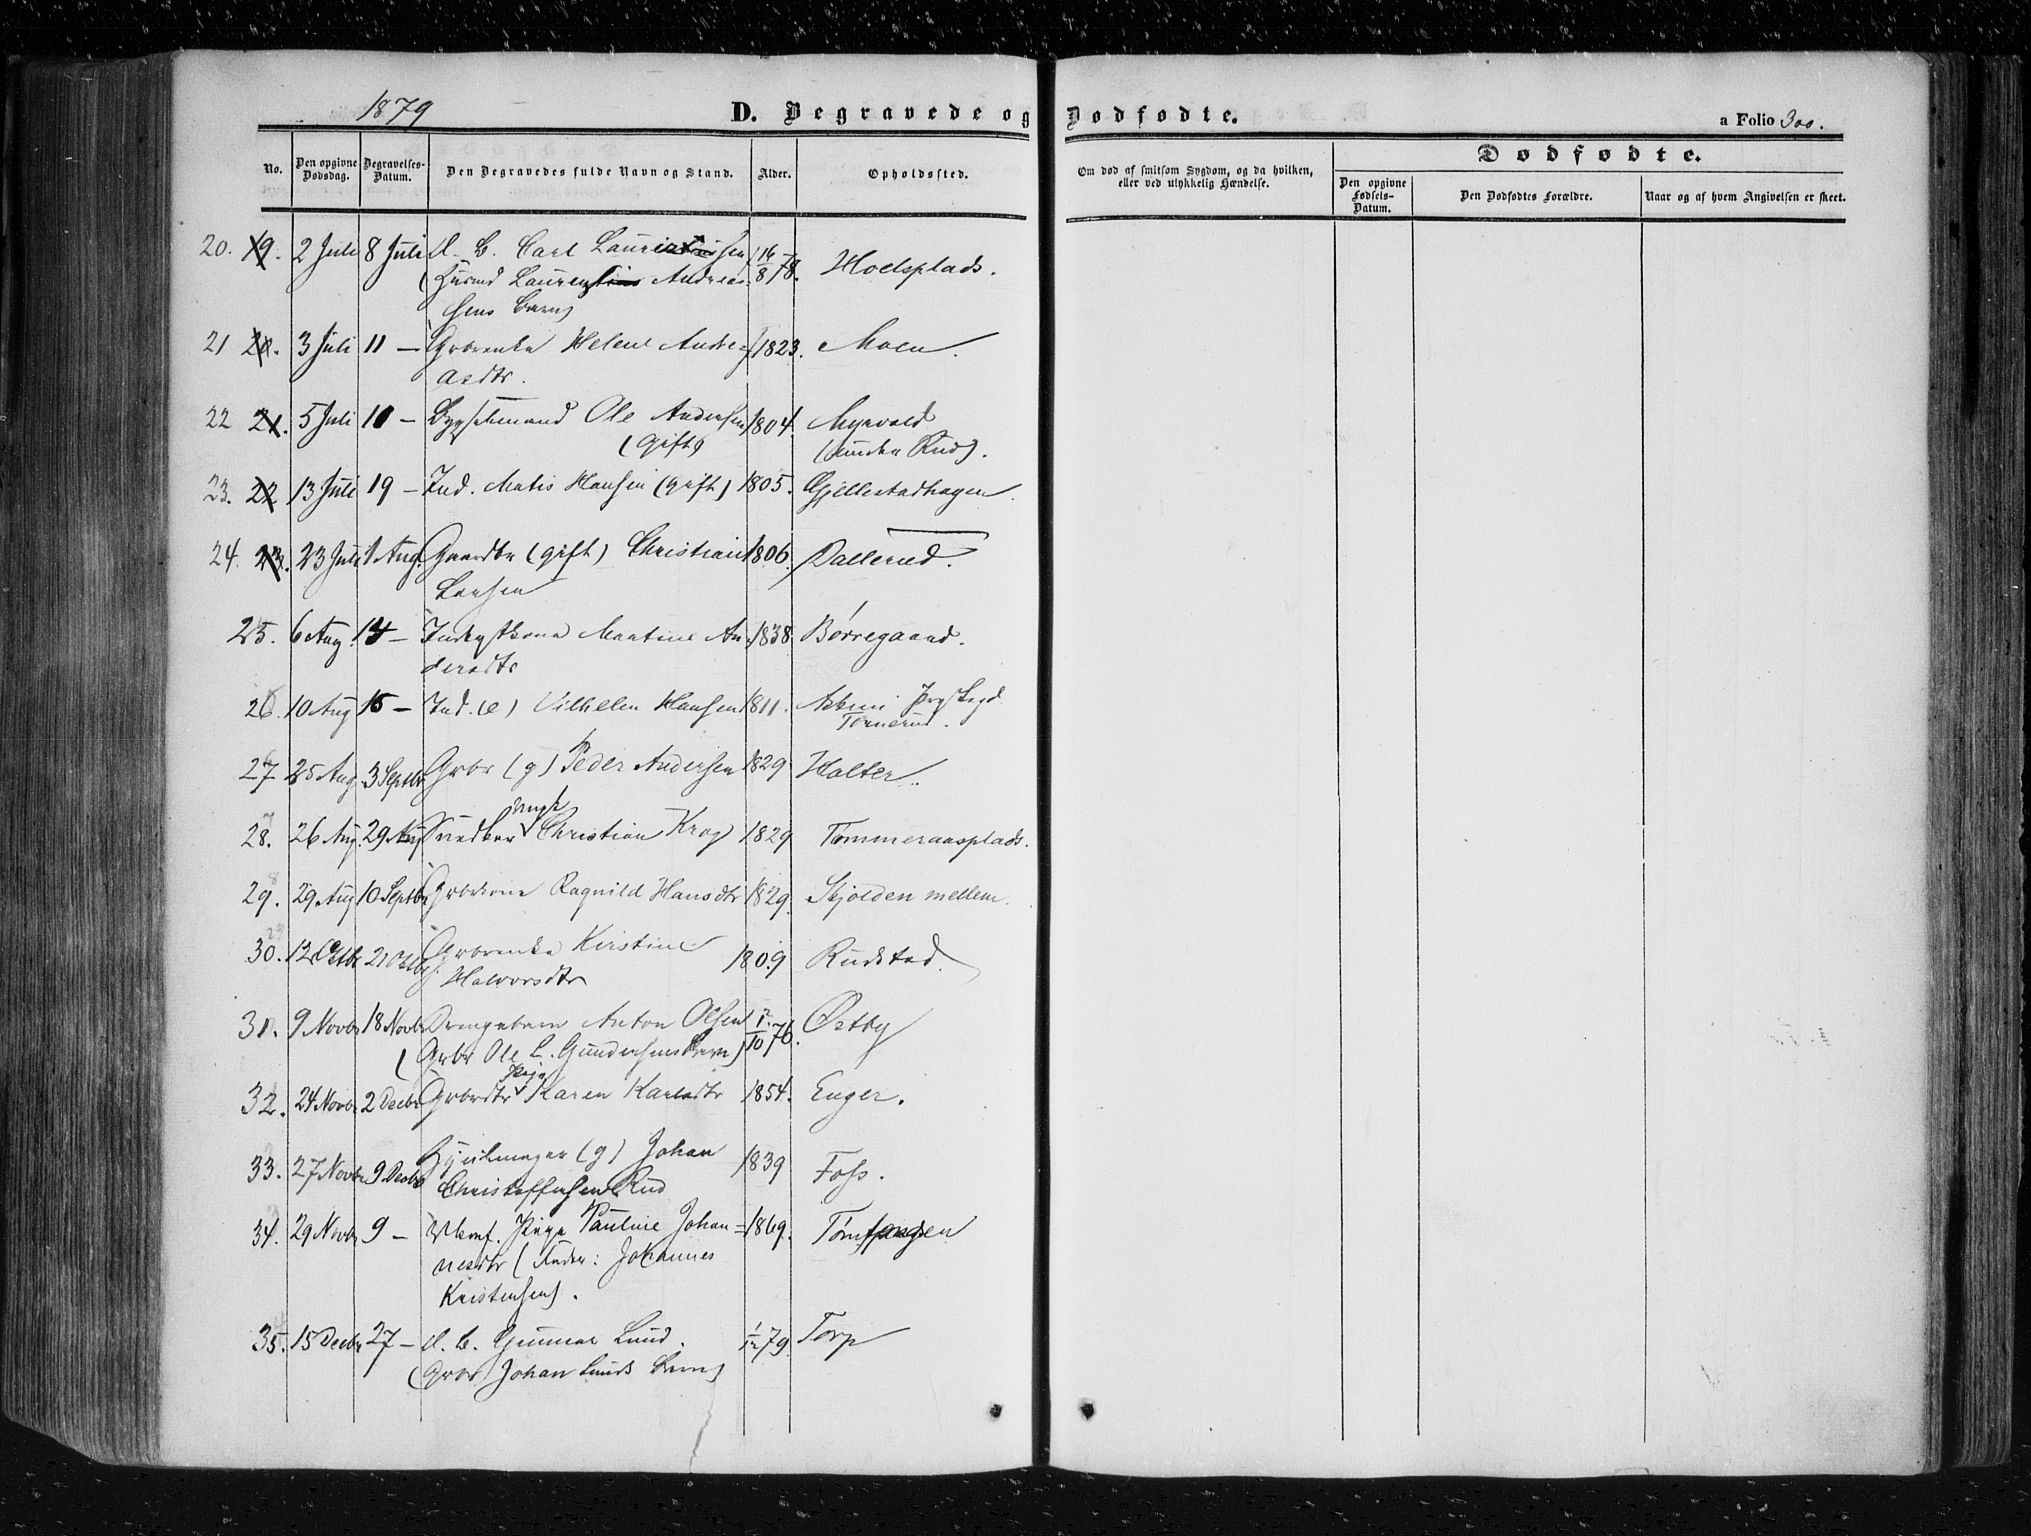 1879
D. Begravede og Dødfødte.
a Folio 300.
No.
Den opgivne Dødsdag.
Begravelses-Datum.
Den Begravedes fulde Navn og Stand.
Alder.
Opholdssted.
Om død af smitsom Sygdom, og da hvilken,
eller ved ulykkelig Hændelse.
Dødfødte.
Den opgivne Fødsels-Datum.
Den Dødfødtes Forældre.
Naar og af hvem Angivelsen er skeet.
20. 19. 2 Juli 8 Juli Carl 16/8 78. Hoelsplads.
(Husmd Andreas-
sens Barn)
21 20. 3 Juli 11 – Grbrenke Helene Andre- 1823. Moen.
asdtr.
22 21. 5 Juli 10 – Bygselmand Ole Andersen 1804. Myrvold
(gift) (under Rud).
23. 22 13 Juli 19 – Ind. Matis Hansen (gift) 1805. Gjellestadhagen
24. 23. 23 Juli 1 Aug. Gaardbr (gift) Christian 1806. Dallerud.
Larsen
25. 6 Aug. 14 – Inderstkone Martine An- 1838. Børregaard.
dersdtr
26. 10 Aug 15 – Ind. (e) Vilhelm Hansen 1811.
Tornerud.
27 25 Aug 3 Septbr Grbr (g) Peder Andersen 1829 Halter.
28. 26 Aug. 29 Aug Snedker Christian Krog 1829 Tømmeraasplads.
29. 29 Aug 10 Septbr Grbrkone Ragnild Hansdtr 1829. Skjolden mellem.
30. 29 12 Octbr 21 Octbr Grbrenke Kirstine 1809 Rudstad.
Halvorsdtr
31. 9 Novbr 18 Novbr Drengebarn Anton Olsen /10 76. Østby
(Grbr Ole L. Gundersens Barn)
32. 24 Novbr 2 Decbr Grbrdtr Pige Karen Karlsdtr 1854. Enger.
33. 27 Novbr 9 Decbr Hjulmager (g) Johan 1839 Foss.
Christoffersen Rud
34. 29 Novbr 9 – Ukonf. Pige Pauline Johan- 1869. Tømtangen
nesdtr (Fader: Johannes
Kristensen).
35. 15 Decbr 27 – Gunnar Lund. 1/12 79. Torp
(Grbr Johan Lunds Barn)